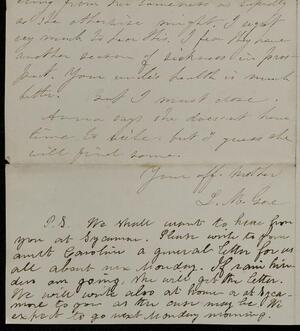 ering from her lameness as rapidly
as she otherwise might. I want
very much to hear this. I fear they have
another season of sickness in pros-
pect. Your uncle's health is much
better. But I must close.
Anna says she does not have
time to write. but I guess she
will find some.
Your aff. Mother
P.S. We shall want to hear from
you at Sycamore. Please write to your
aunt Caroline a general letter for us
all about next Monday. If
are going, she will get the letter.
We will write also at Rome or at Syca-
more to you as the case may be. We
expect to go next Monday morning.